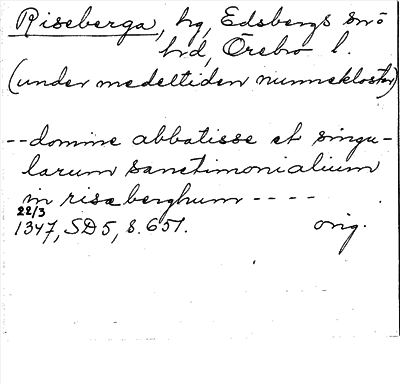 Riseberga, hg, Edsbergs sn o
hd, Örebro l.
(under medeltiden nunnekloster)
--domine abbatisse et singu-
larum sanctimonialium
in risæberghum ----
22/3
1347, SD5, s. 651. orig.